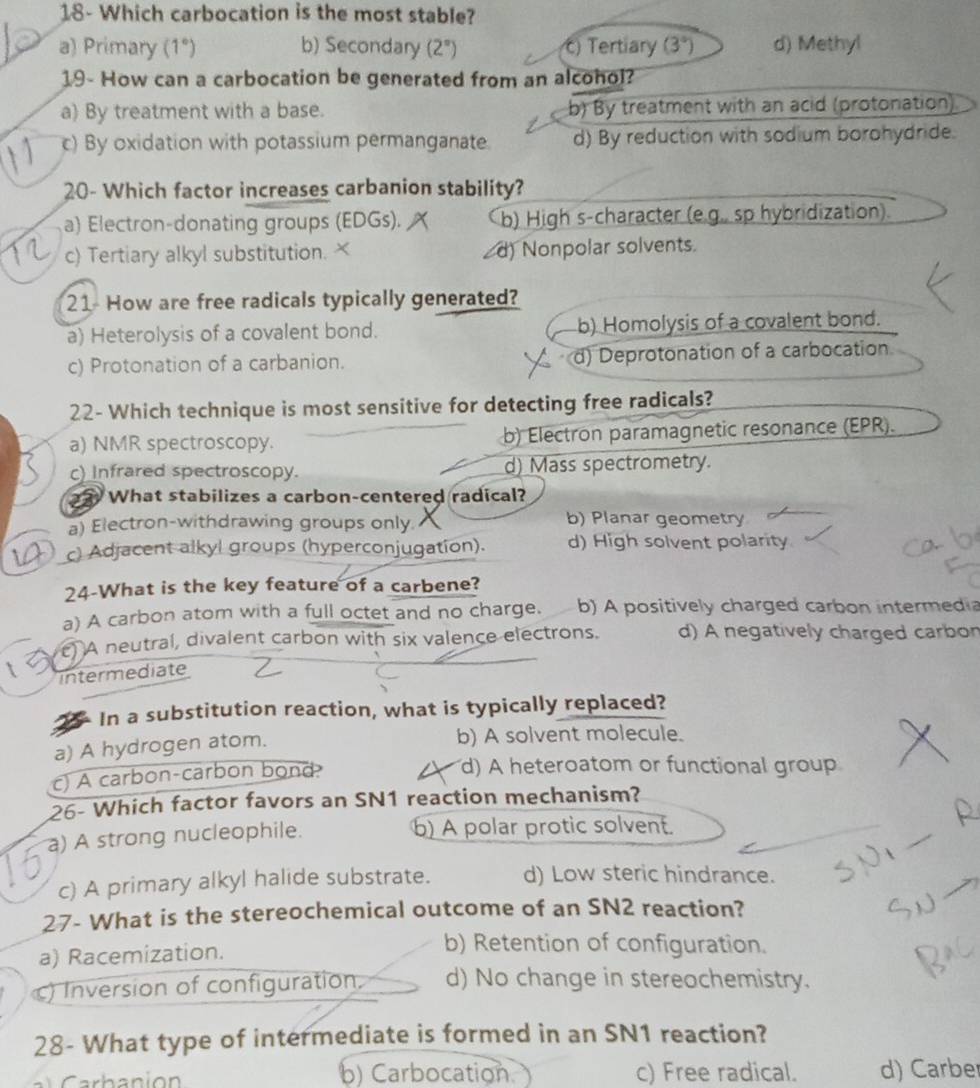 18- Which carbocation is the most stable?
a) Primary (1°) b) Secondary (2°) c) Tertiary (3°) d) Methyl
10
19- How can a carbocation be generated from an alcohol?
a) By treatment with a base. b) By treatment with an acid (protonation).
11 c) By oxidation with potassium permanganate. d) By reduction with sodium borohydride.
20- Which factor increases carbanion stability?
a) Electron-donating groups (EDGs). b) High s-character (e.g., sp hybridization).
12 c) Tertiary alkyl substitution. d) Nonpolar solvents.
21- How are free radicals typically generated?
a) Heterolysis of a covalent bond. b) Homolysis of a covalent bond.
c) Protonation of a carbanion. d) Deprotonation of a carbocation.
22- Which technique is most sensitive for detecting free radicals?
a) NMR spectroscopy. b) Electron paramagnetic resonance (EPR).
c) Infrared spectroscopy. d) Mass spectrometry.
23- What stabilizes a carbon-centered radical?
a) Electron-withdrawing groups only. b) Planar geometry.
c) Adjacent alkyl groups (hyperconjugation). d) High solvent polarity.
24-What is the key feature of a carbene?
a) A carbon atom with a full octet and no charge. b) A positively charged carbon intermedia
c) A neutral, divalent carbon with six valence electrons. d) A negatively charged carbon
intermediate.
25- In a substitution reaction, what is typically replaced?
a) A hydrogen atom. b) A solvent molecule.
c) A carbon-carbon bond? d) A heteroatom or functional group.
26- Which factor favors an SN1 reaction mechanism?
a) A strong nucleophile. b) A polar protic solvent.
SN1 -
c) A primary alkyl halide substrate. d) Low steric hindrance.
SN
27- What is the stereochemical outcome of an SN2 reaction?
a) Racemization. b) Retention of configuration.
c) Inversion of configuration. d) No change in stereochemistry.
28- What type of intermediate is formed in an SN1 reaction?
a) Carbanion b) Carbocation. c) Free radical. d) Carbe